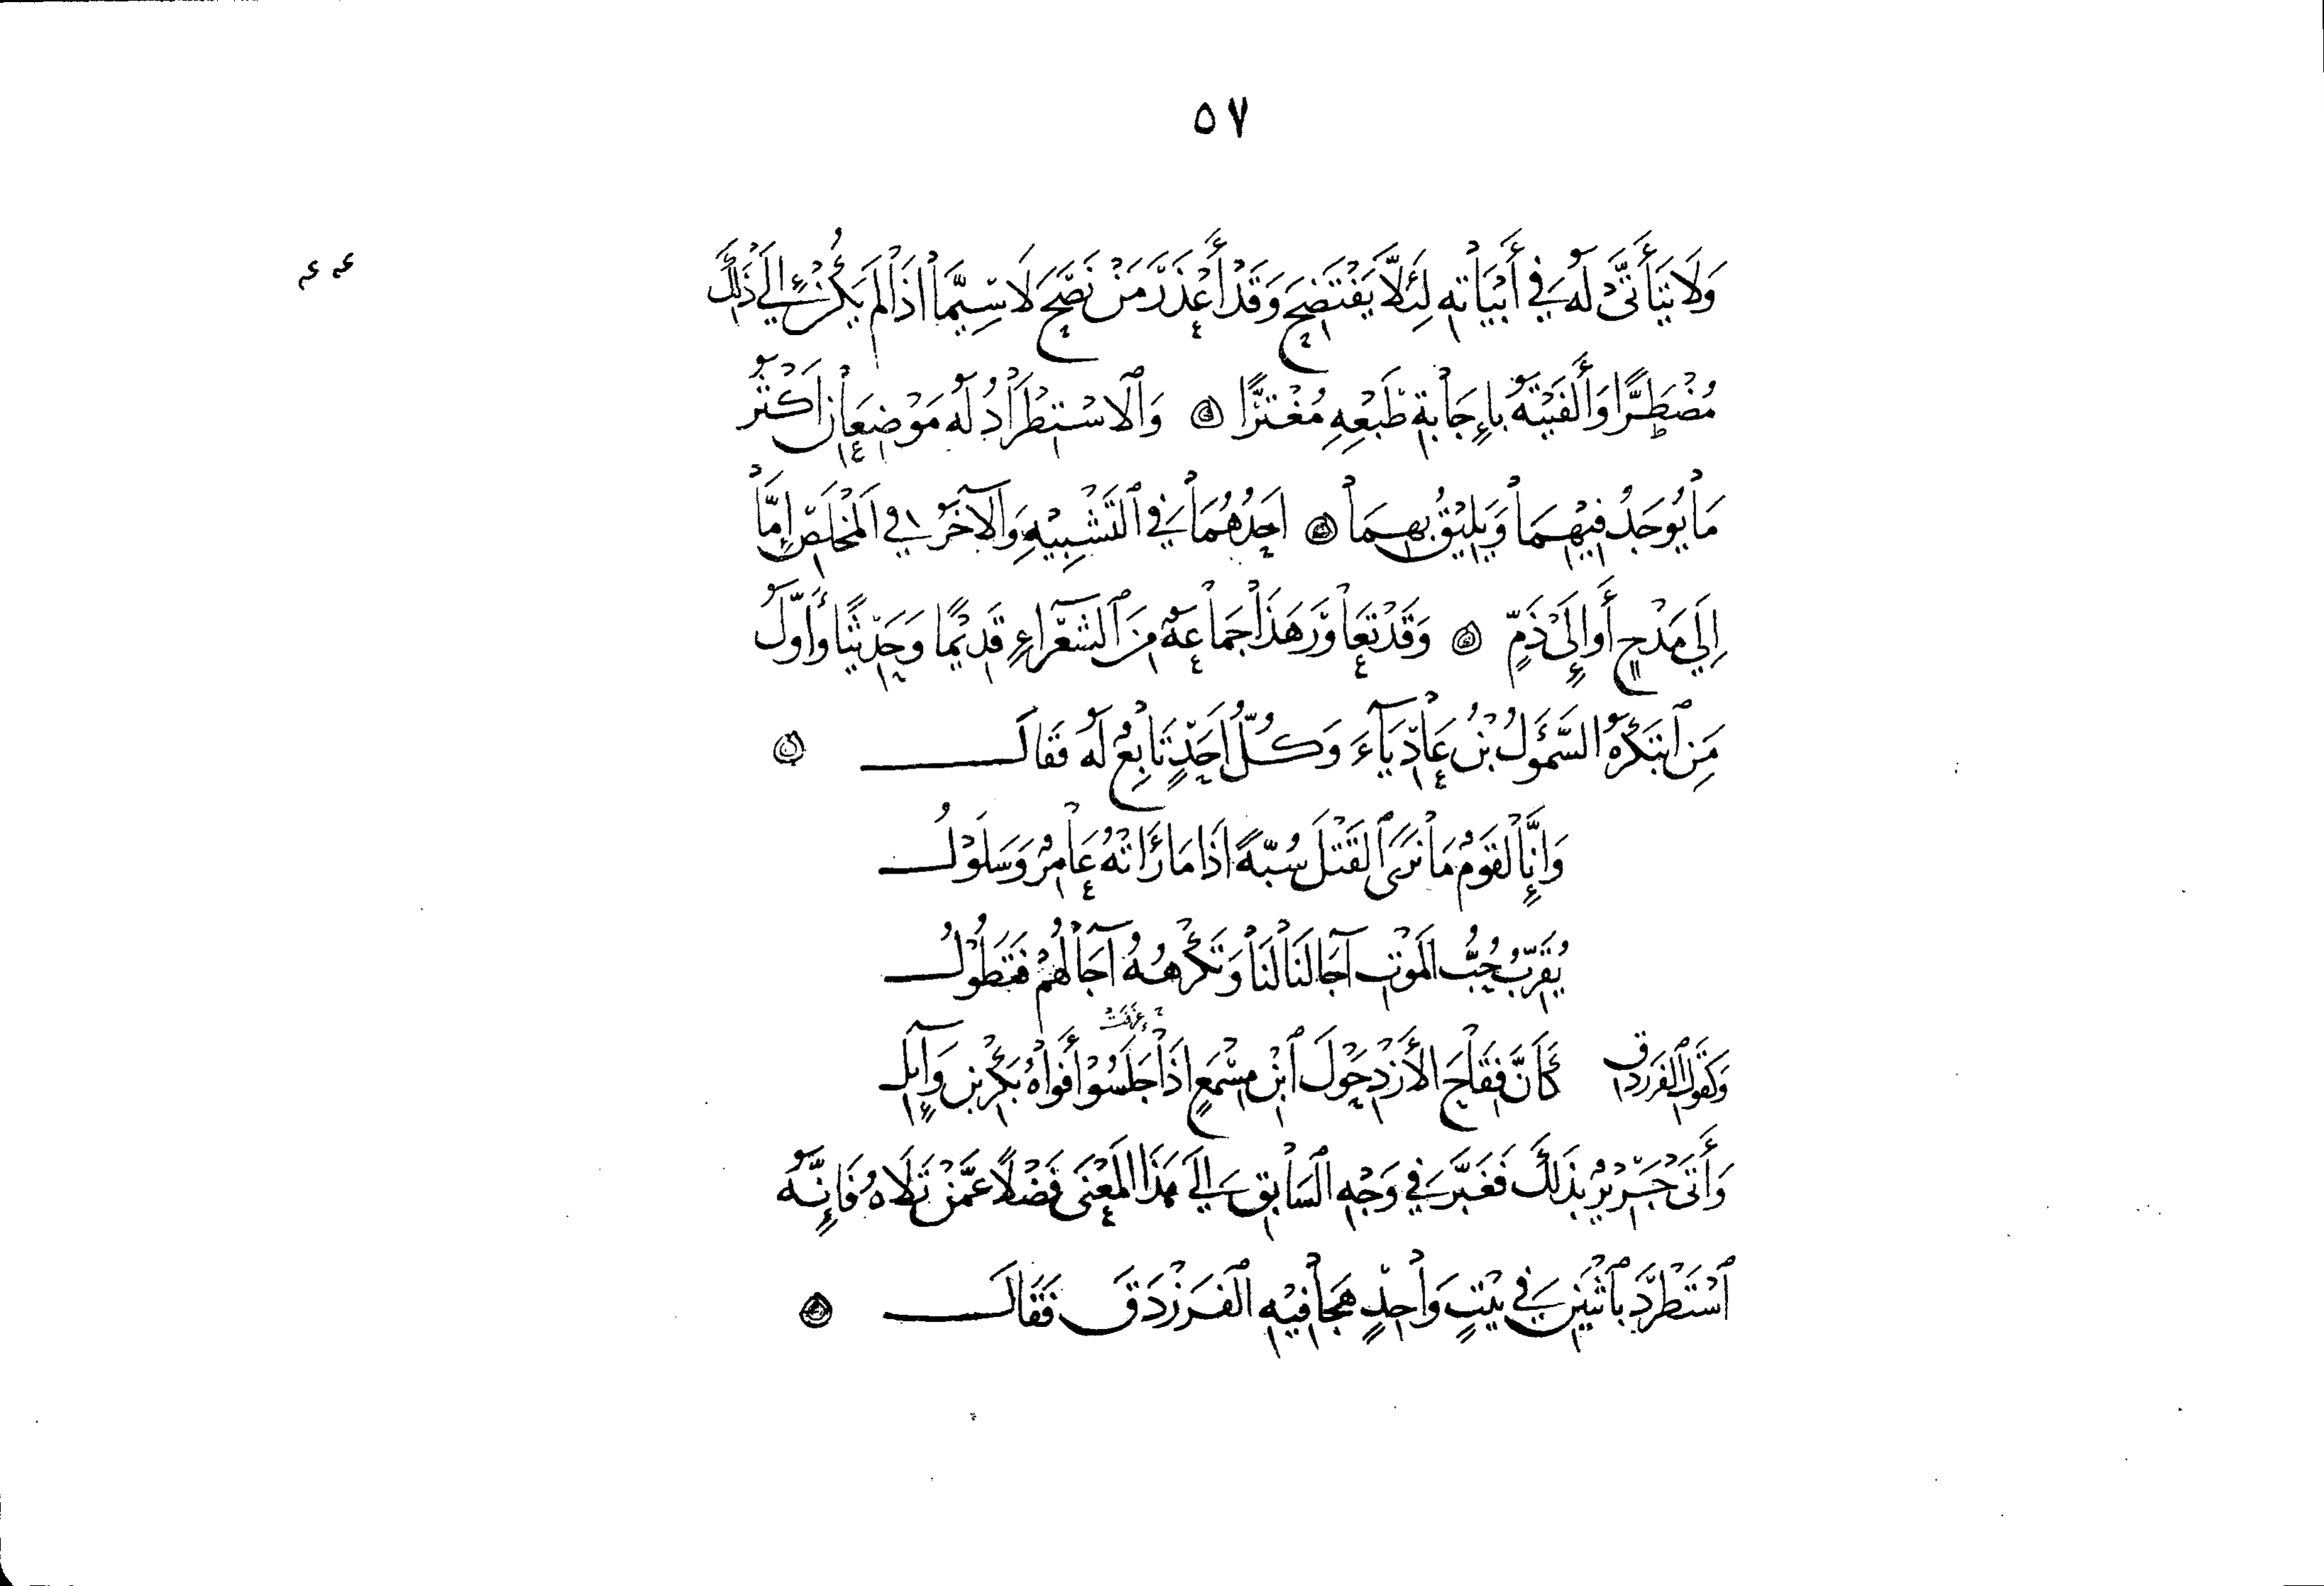 ٥٧
وَلَا يَتَأَتَّى لَهُ فِي أَبْيَاتِهِ لِئَلَّا يَفْتَضِحَ وَقَدْ أَعْذَرَ مَنْ نَصَحَ لَا سِيَّمَا إِذَا لَمْ يَكُنْ إِلَى ذَلِكَ
مُضْطَرًّا وَأَلْفَيْتَهُ بِإِجَابَةِ طَبْعِهِ مُغْتَرًّا ۞ وَالاسْتِطْرَادُ لَهُ مَوْضِعَانِ أَكْثَرُ
مَا يُوجَدُ فِيهِمَا وَيَلِيقُ بِهِمَا ۞ أَحَدُهُمَا فِي التَّشْبِيهِ وَالآخَرُ فِي الْمَخْلَصِ إِمَّا
إِلَى مَدْحٍ أَو إِلَى ذَمٍّ ۞ وَقَدْ تَعَاوَرَ هَذَا جَمَاعَةٌ مِنَ الشُّعَرَاءِ قَدِيمًا وَحَدِيثًا وَأَوَّلُ
مَنِ ابْتَكَرَهُ السَّمَوْءَلُ بْنُ عَادِيَاءَ وَكُلُّ أَحَدٍ تَابِعٌ لَهُ فَقَالَ ۞
وَإِنَّا لَقَوْمٌ مَا نَرَى الْقَتْلَ سُبَّةً إِذَا مَا رَأَتْهُ عَامِرٌ وَسَلُولُ
يُقَرِّبُ حُبُّ الْمَوْتِ آجَالَنَا لَنَا وَتَكْرَهُهُ آجَالُهُمْ فَتَطُولُ
وَكَقَوْلِ الْفَرَزْدَقِ كَأَنَّ فِقَاحَ الأَزْدِ حَوْلَ ابْنِ مِسْمَعٍ إِذَا جَلَسُوا أَفْوَاهُ بَكْرِ بْنِ وَائِلِ
وَأَتَى جَرِيرٌ بِذَلِكَ فَغَبَّرَ فِي وَجْهِ السَّابِقِ إِلَى هَذَا الْمَعْنَى فَضْلًا عَمَّنْ تَلَاهُ فَإِنَّهُ
اسْتَطْرَدَ بِاثْنَيْنِ فِي بَيْتٍ وَاحِدٍ هَجَا فِيهِ الْفَرَزْدَقَ فَقَالَ ۞